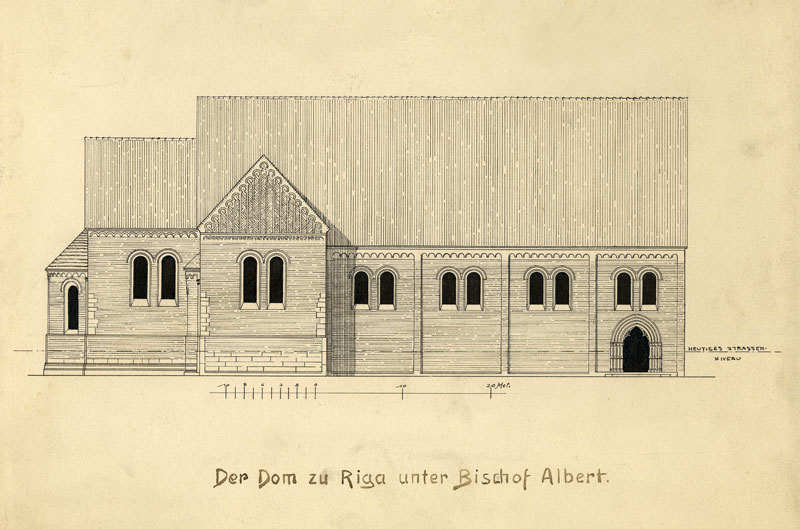 HEUTIGES STRASSEN-
NIVEAU
10 8 6 4 2 0 10 20 Met.
Der Dom zu Riga unter Bischof Albert.